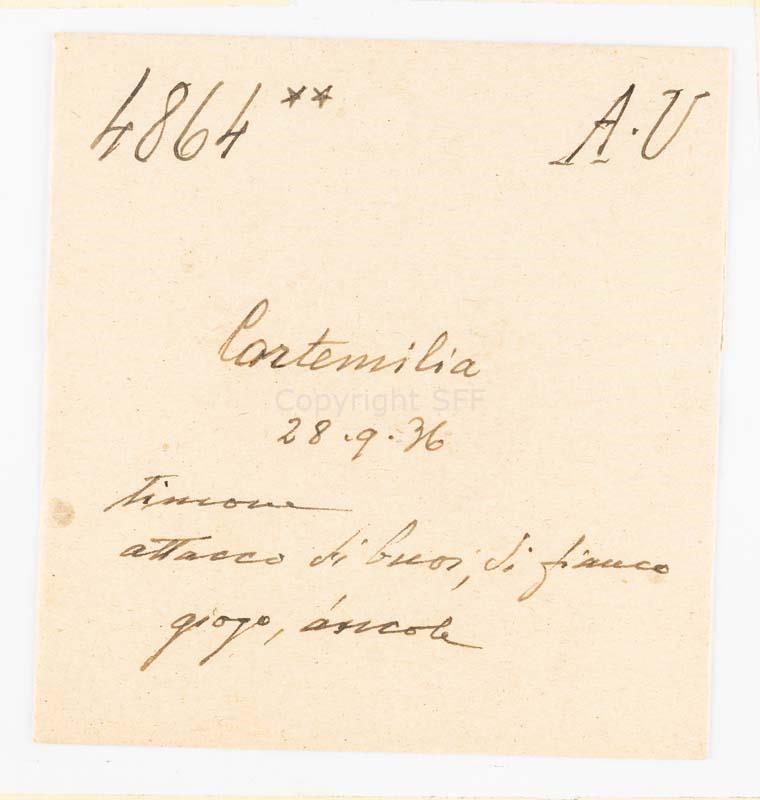 4864 ** A.V
Cortemilia
Copyright SFF
28.9.36
timone
attacco di buoi, di fianco
giogo,